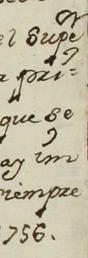 el Supe
a pri=
que se
ay im
siempre
1756.